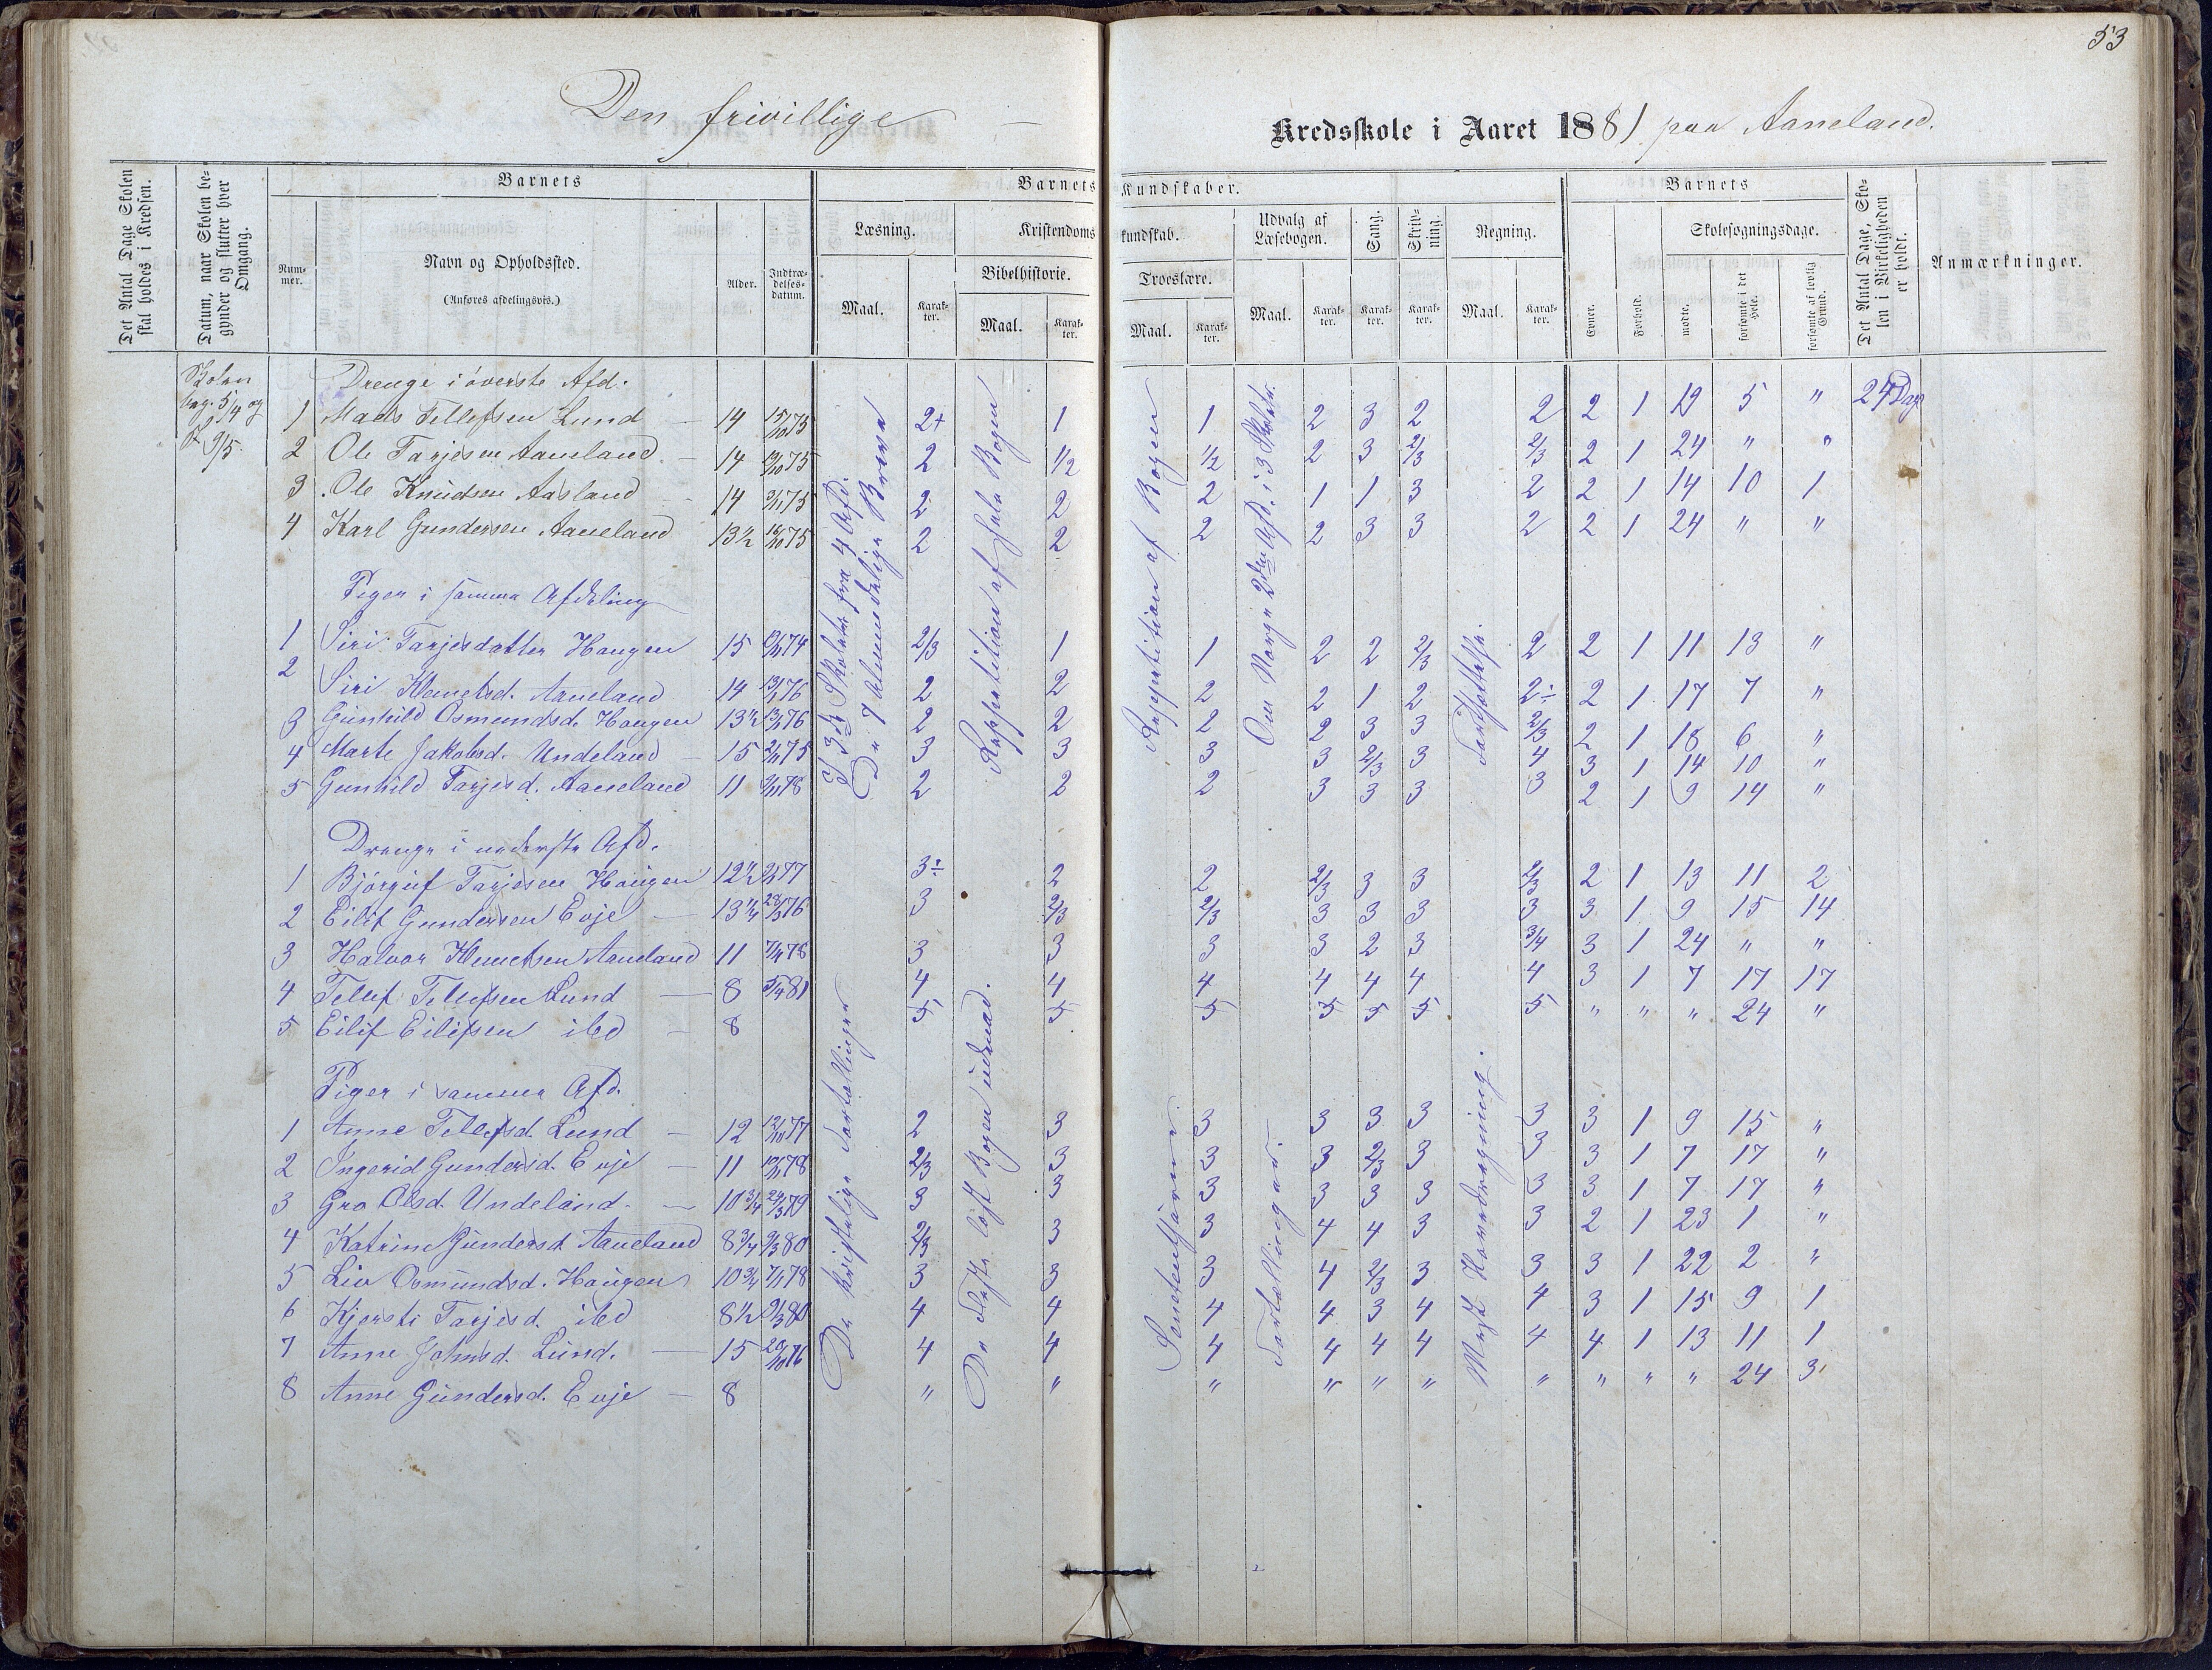 53
Den frivillige — Kredsskole i Aaret 1881 paa Aaneland.
Det Antal Dage Skolen skal holdes i Kredsen.
Datum, naar Skolen begynder og slutter hver Omgang.
Barnets
Nummer.
Navn og Opholdssted.
(Anføres afdelingsvis.)
Alder.
Indtrædelsesdatum.
Barnets Kundskaber.
Læsning.
Maal.
Karakter.
Kristendomskundskab.
Bibelhistorie.
Maal.
Karakter.
Troeslære.
Maal.
Karakter.
Udvalg af Læsebogen.
Maal.
Karakter.
Sang.
Karakter.
Skrivning.
Karakter.
Regning.
Maal.
Karakter.
Barnets
Evner.
Forhold.
Skolesøgningsdage.
mødte.
forsømte i det Hele.
forsømte af lovlig Grund.
Det Antal Dage, Skolen i Virkeligheden er holdt.
Anmærkninger.
Skolen
beg. 5/4 og
9/5.
Drenge i øverste Afd.
1 Mads Tellefsen Lund — 14 15/10 75 2+ 1 1 2 3 2 2 2 1 19 5 " 24 Dage
2 Ole Tarjesen Aaneland — 14 75 2 1/2 1/2 2 3 2/3 2/3 2 1 24 " "
3 Ole Knudsen Aasland 14 75 2 2 2 1 1 3 2 2 1 14 10 1
4 Karl Gundersen Aaneland 13½ 75 2 2 2 2 3 3 2 2 1 24 " "
Piger i samme Afdeling
1 Siri Tarjesdatter Haugen 15 74 2/3 1 1 2 2 2/3 2 2 1 11 13 "
2 Siri Klemetsd. Aaneland 14 76 2 2 2 2 1 2 2÷ 2 1 17 7 "
3 Gunhild Osmundsd. Haugen 13½ 76 2 2 2 2 3 3 2/3 2 1 18 6 "
4 Marte Jakobsd. Undeland — 15 75 3 3 3 3 2/3 3 4 3 1 14 10 "
5 Gunhild Tarjesd. Aaneland 11 78 2 2 2 3 3 3 3 2 1 9 14 "
Drenge i nederste Afd.
1 Bjørguf Tarjesen Haugen 12½ 77 3÷ 2 2 2/3 3 3 2/3 2 1 13 11 2
2 Eilif Gundersen Evje — 13¼ 28/3 76 3 2/3 2/3 3 3 3 3 3 1 9 15 14
3 Halvor Klemetsen Aaneland 11 78 3 3 3 3 2 3 3/4 3 1 24 " "
4 Tellef Tellefsen Lund — 8 5/4 81 4 4 4 4 4 4 4 3 1 7 17 17
5 Eilif Eilifsen ibd — 8 5 5 5 5 5 5 5 " " " 24 "
Piger i samme Afd.
1 Anne Tellefsd. Lund — 12 12/10 77 2 3 3 3 3 3 3 3 1 9 15 "
2 Ingerid Gundersd. Evje — 11 78 2/3 3 3 3 2/3 3 3 3 1 7 17 "
3 Gro Olsd. Undeland. — 10¾ 24/3 79 3 3 3 3 3 3 3 3 1 7 17 "
4 Katrine Gundersd. Aaneland 8¾ 9/3 80 2/3 3 3 4 4 3 3 2 1 23 1 "
5 Liv Osmundsd. Haugen 10¾ 78 3 3 3 4 2/3 3 3 3 1 22 2 "
6 Kjersti Tarjesd. ibd 8½ 9/3 80 4 4 4 4 3 4 4 3 1 15 9 1
7 Anne Johnsd. Lund. — 15 20/10 76 4 4 4 4 4 4 4 4 1 13 11 1
8 Anne Gundersd. Evje — 8 " " " " " " " " " " 24 3
3die Skoletr fra 4 Afd.
De 7 Almindelige Breve
Reppetition af hele Bogen
Reppetition af Bogen
Om Norge 2den Afd. i 3 Skoletr.
Forholdstal
De kristelige Fortællinger
De Fleste løst Bogen udenad.
Sendemændene
Fortællingerne
Mest Hovedregning.